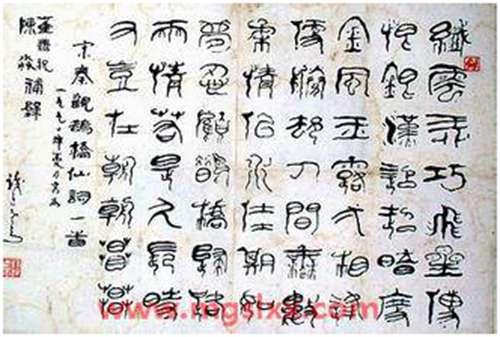 纖雲弄巧飛星傳
恨銀漢迢迢暗度
金風玉露一相逢
便勝卻人間無數
柔情似水佳期如
夢忍顧鵲橋歸路
兩情若是久長時
又豈在朝朝暮暮
宋秦觀鵲橋仙詞一首
一九九
補壁
www.mgslxx.com